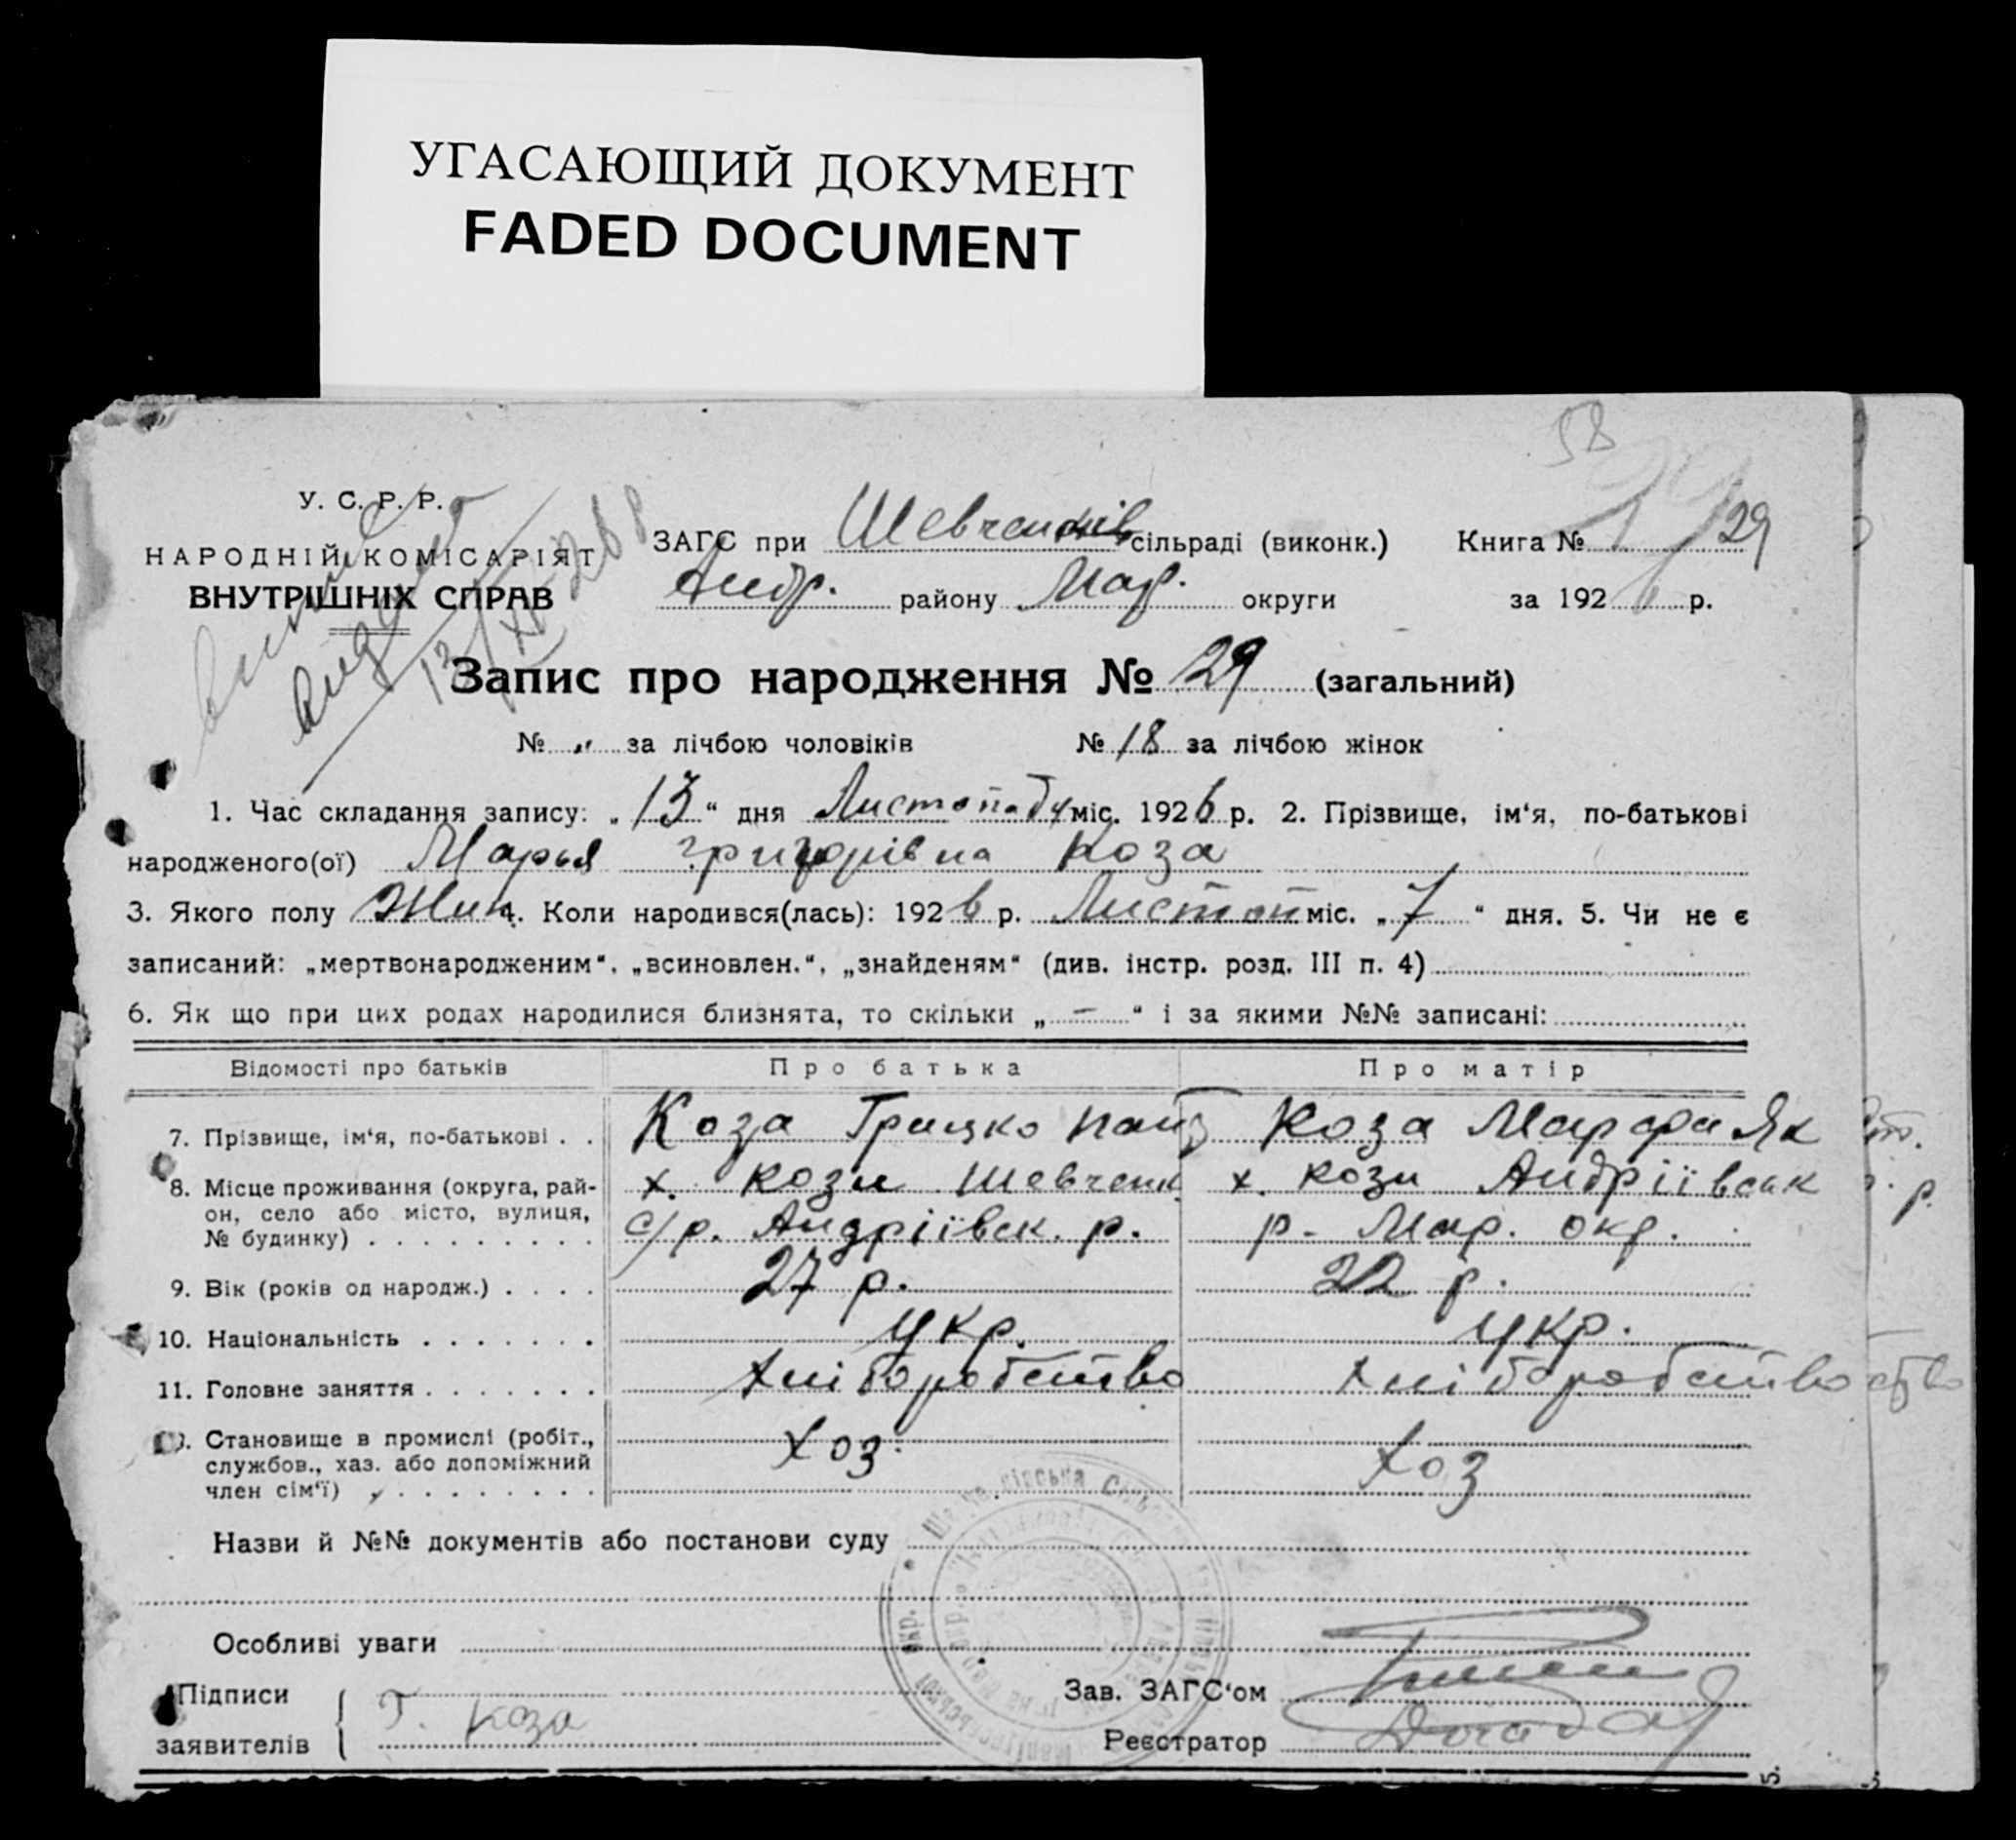 УГАСАЮЩИЙ ДОКУМЕНТ
FADED DOCUMENT
58
У. С. Р. Р.
НАРОДНІЙ КОМІСАРІЯТ
ВНУТРІШНІХ СПРАВ
ЗАГС при Шевченків сільраді (виконк.) Книга № 29
Андр. району Мар. округи за 1926 р.
Запис про народження № 29 (загальний)
№ „ за лічбою чоловіків № 18 за лічбою жінок
1. Час складання запису: „13“ дня Листопаду міс. 1926 р. 2. Прізвище, ім‘я, по-батькові
народженого(ої) Марья Григорівна Коза
3. Якого полу Жін 4. Коли народився(лась): 1926 р. Листоп міс. „7“ дня. 5. Чи не є
записаний: „мертвонародженим“, „всиновлен.“, „знайденям“ (див. інстр. розд. III п. 4)
6. Як що при цих родах народилися близнята, то скільки „ – “ і за якими №№ записані:
Відомості про батьків Про батька Про матір
7. Прізвище, ім‘я, по-батькові . . Коза Грицко Коза Марфа Як
8. Місце проживання (округа, рай- х. Кози Шевченк х. Кози Андріївськ
он, село або місто, вулиця, с/р. Андріївск. р. р. Мар. окр.
№ будинку)
9. Вік (років од народж.) . . . . 27 р. 22 р.
10. Національність . . . . . . . укр. укр.
11. Головне заняття . . . . . . . Хліборобство Хліборобство
Становище в промислі (робіт., Хоз. Хоз
службов., хаз. або допоміжний
член сім‘ї)
Назви й №№ документів або постанови суду
Особливі уваги
Підписи Зав. ЗАГС‘ом
Г. Коза
заявителів Реєстратор